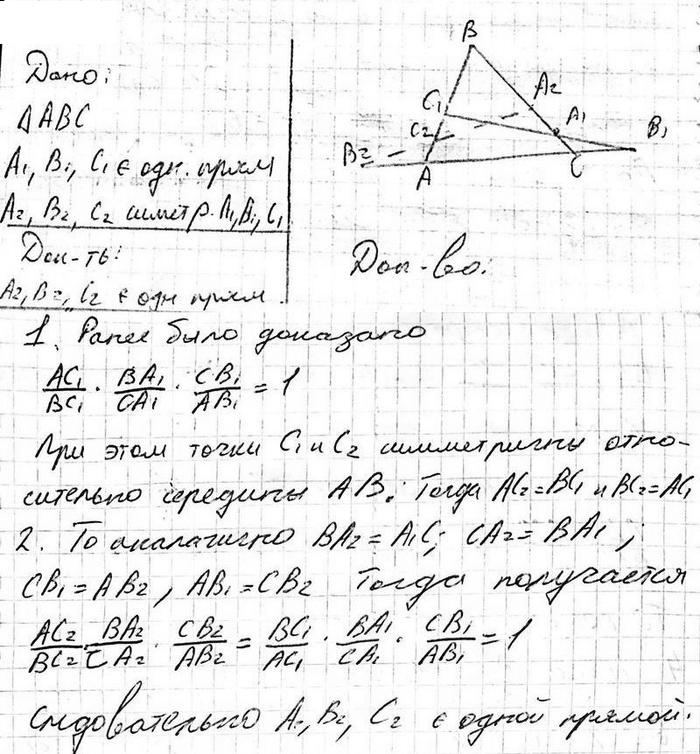 Дано:
ΔABC
A₁, B₁, C₁ ∈ одн. прям
A₂, B₂, C₂ симметр. A₁, B₁, C₁
Док-ть:
A₂, B₂, C₂ ∈ одн прям.
B
A₂
C₁
A₁
C₂
B₁
B₂
A
C
Док-во:
1. Ранее было доказано
AC₁/BC₁ · BA₁/CA₁ · CB₁/AB₁ = 1
При этом точки C₁ и C₂ симметричны отно-
сительно середины AB. Тогда AC₂=BC₁ и BC₂=AC₁
2. То аналагично BA₂ = A₁C; CA₂ = BA₁,
CB₁ = AB₂, AB₁ = CB₂ Тогда получается
AC₂/BC₂ · BA₂/CA₂ · CB₂/AB₂ = BC₁/AC₁ · BA₁/CB₁ · CB₁/AB₁ = 1
следовательно A₂, B₂, C₂ ∈ одной прямой.